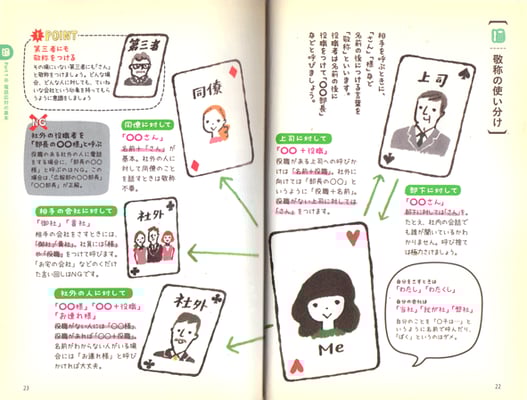 敬称の使い分け
相手を呼ぶときに、
「さん」「様」など
名前の後につける言葉を
「敬称」といいます。
役職者は名前の後に
役職をつけて、「〇〇部長」
などと呼びましょう。
上司
上司に対して
「〇〇+役職」
役職がある上司への呼びか
けは「名前+役職」。社外に
向けては「部長の〇〇」と
いうように「役職+名前」。
役職がない上司に対しては
「さん」をつけます。
部下に対して
「〇〇さん」
部下に対しても「さん」を。
たとえ、社内の会話で
も誰が聞いているかわ
かりません。呼び捨て
は極力さけましょう。
Me
自分をさす言葉は
「わたし」「わたくし」
自分の会社は
「当社」「我が社」「弊社」
自分のことを「〇子は…」と
いうように名前で呼んだり、
「ぼく」というのはダメ。
22
POINT
第三者にも
敬称をつける
その場にいない第三者にも「さん」
と敬称をつけましょう。どんな場
合、どんな人に対しても、ていね
いな会社という印象を持ってもら
うように意識をしましょう
第三者
NG
社外の役職者を
「部長の〇〇様」と呼ぶ
役職がある社外の人に電話
をする場合に、「部長の〇〇
様」と呼ぶのはNG。この
場合は「広報部の〇〇部長」
「〇〇部長」が正解。
同僚
同僚に対して
「〇〇さん」
名前+「さん」が
基本。社外の人に
対して同僚のこと
を話すときは敬称
不要。
相手の会社に対して
「御社」「貴社」
相手の会社をさすときには、
「御社」「貴社」。社員には「様」
や「役職」をつけて呼びます。
「お宅の会社」などのくだけ
た言い回しはNGです。
社外
社外の人に対して
「〇〇様」「〇〇+役職」
「お連れ様」
役職がない人には「〇〇様」、
役職があれば「〇〇+役職」。
名前がわからない人がいる場
合には「お連れ様」と呼び
かければ大丈夫。
社外
23